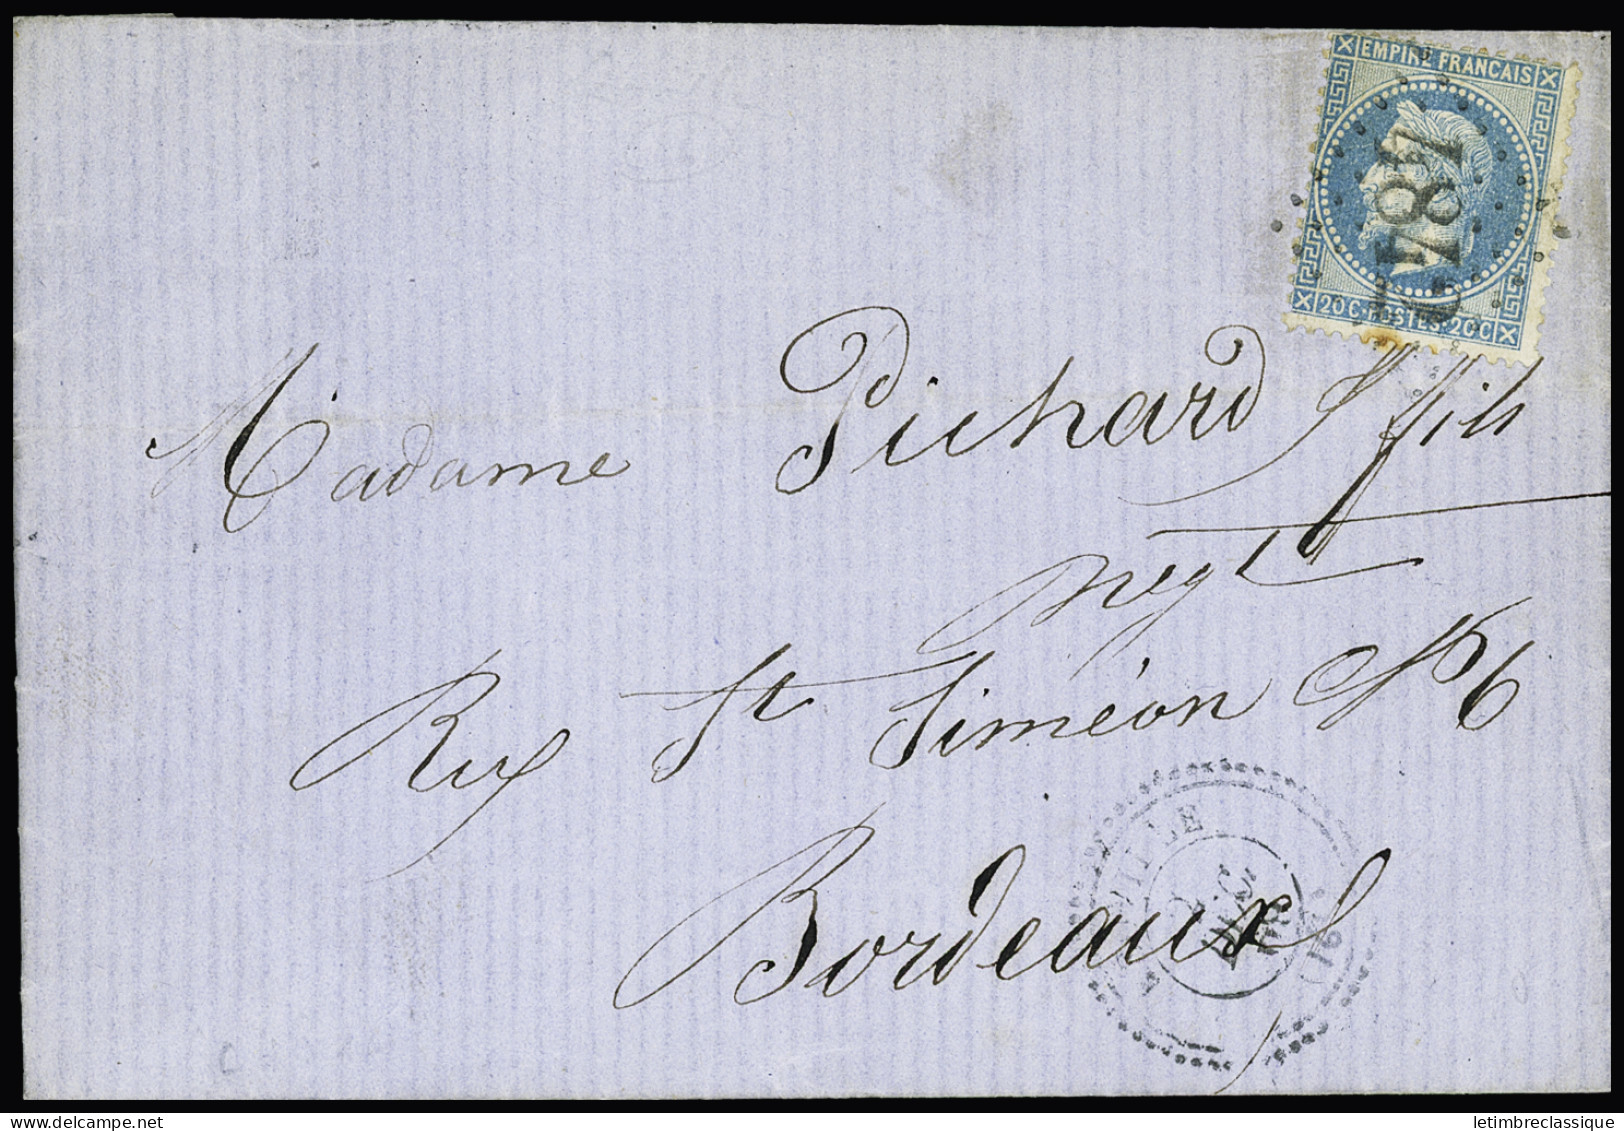 EMPIRE FRANCAIS
20C·POSTES·20C
Madame Pichard & fils
negt
Rue St Siméon No 6
Bordeaux
VILLE
DEC
68
(16)
letimbreclassique